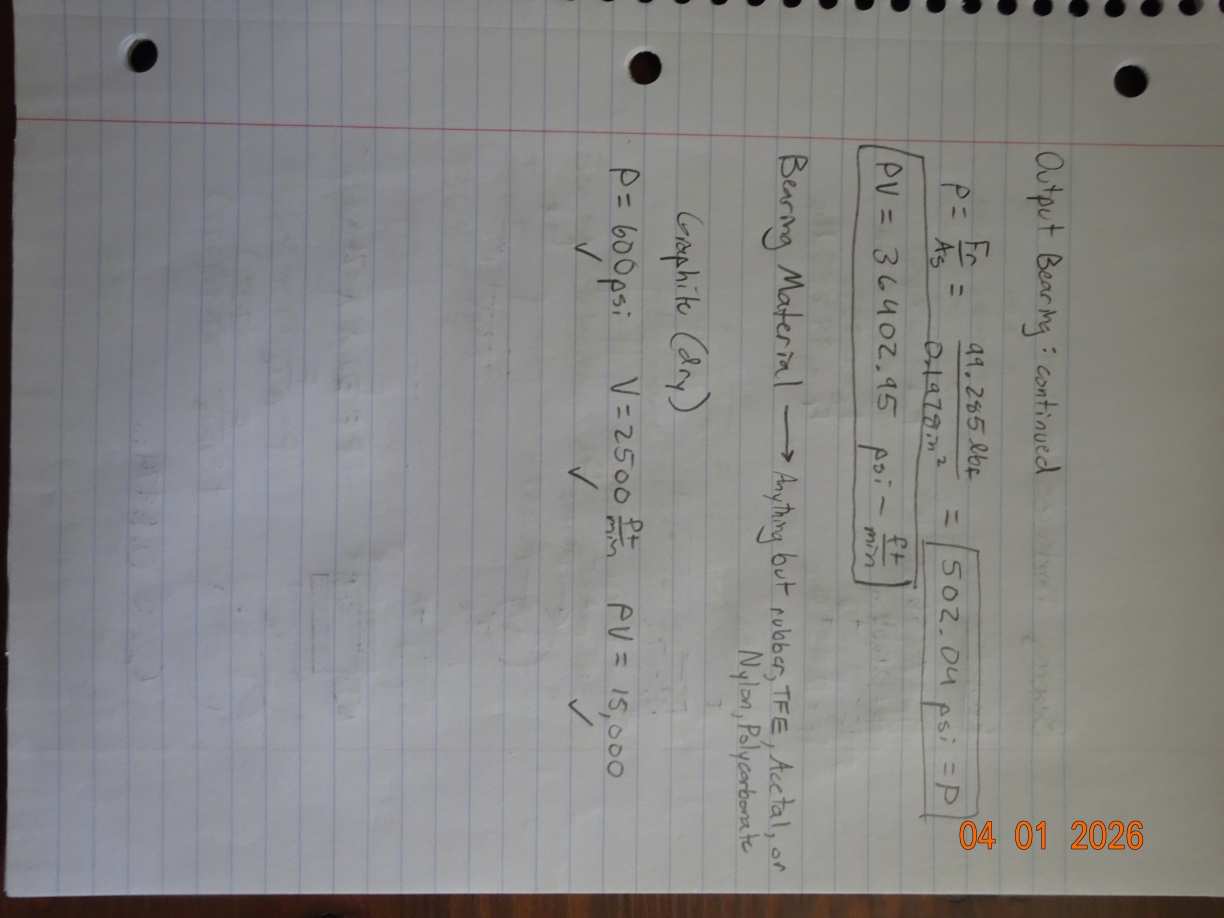 Output Bearing: continued
P = Fr/As = 99.285 lbf/0.1978 in² = 502.04 psi = P
PV = 36402.95 psi - ft/min
Bearing Material → Anything but rubber, TFE, Acetal, or
Nylon, Polycarbonate
Graphite (dry)
P = 600 psi V = 2500 ft/min PV = 15,000
✓ ✓ ✓
04 01 2026